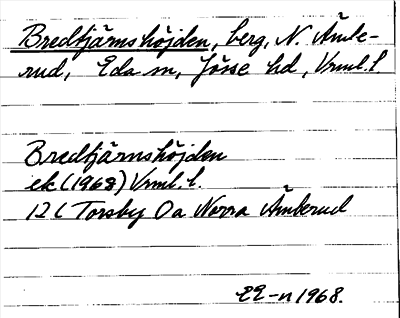 Bredtjärnshöjden, berg, N. Ämte-
rud, Eda sn, Jösse hd, Vrml. l.
Bredtjärnshöjden
ek (1968) Vrml. l.
12 C Torsby 0a Norra Ämterud
1968.